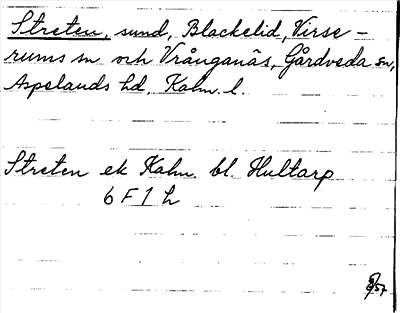 Streten, sund, Blackelid, Virse-
rums sn och Vrånganäs, Gårdveda sn,
Aspelands hd, Kalm. l.
Streten ek Kalm. bl. Hultarp
6 F 1 h